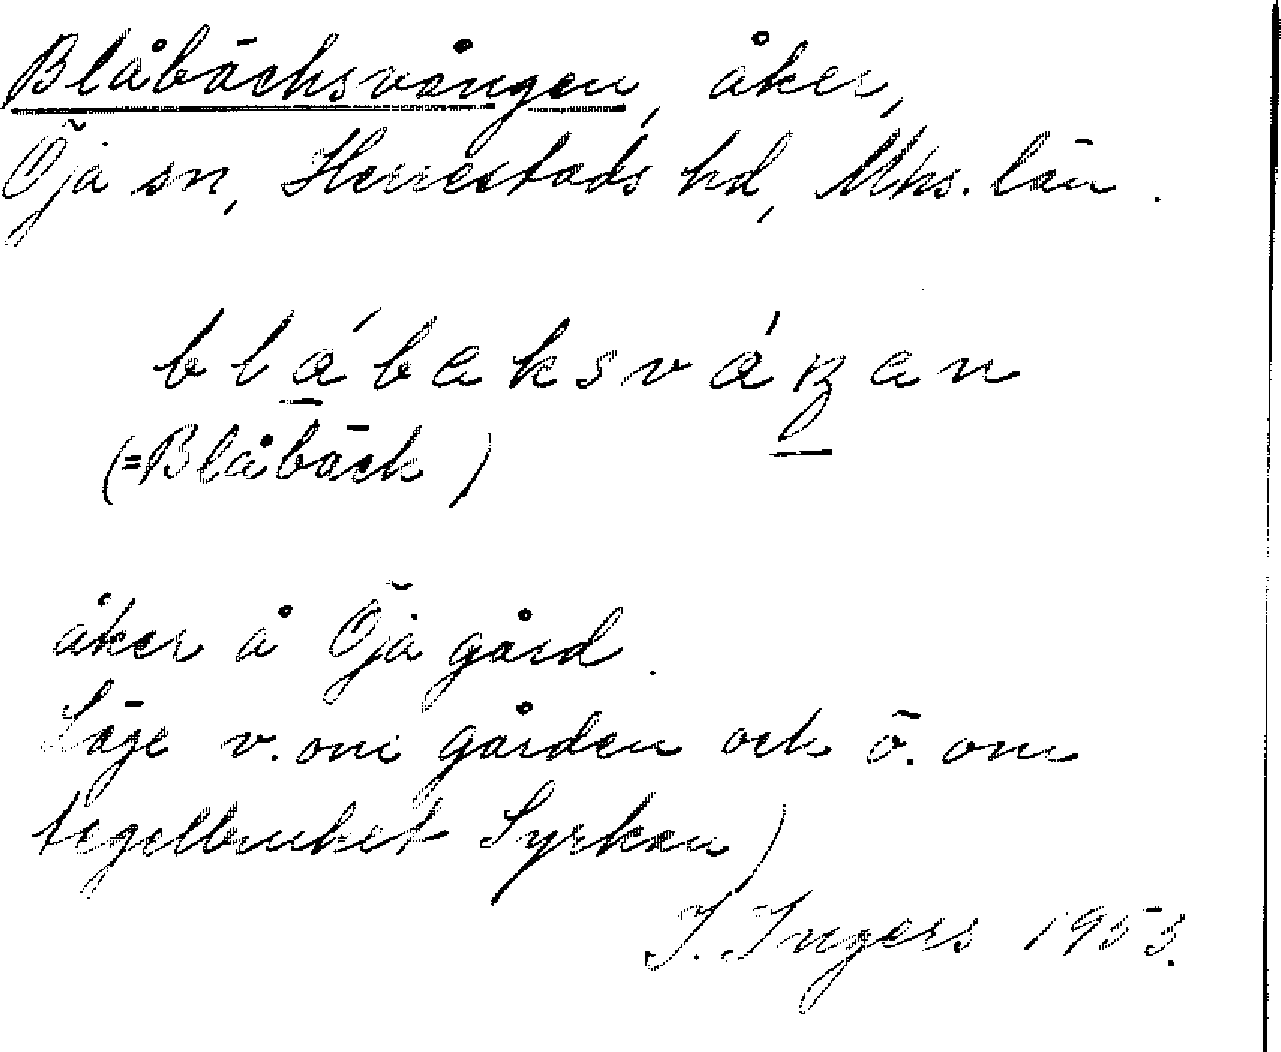 Blåbäcksvången, åker,
Öja sn, Herrestads hd, Mhs. län.
blábaksváŋan
(=Blåbäck)
åker å Öja gård.
Läge v. om gården och ö. om
tegelbruket Syrkan)
I. Ingers 1953.